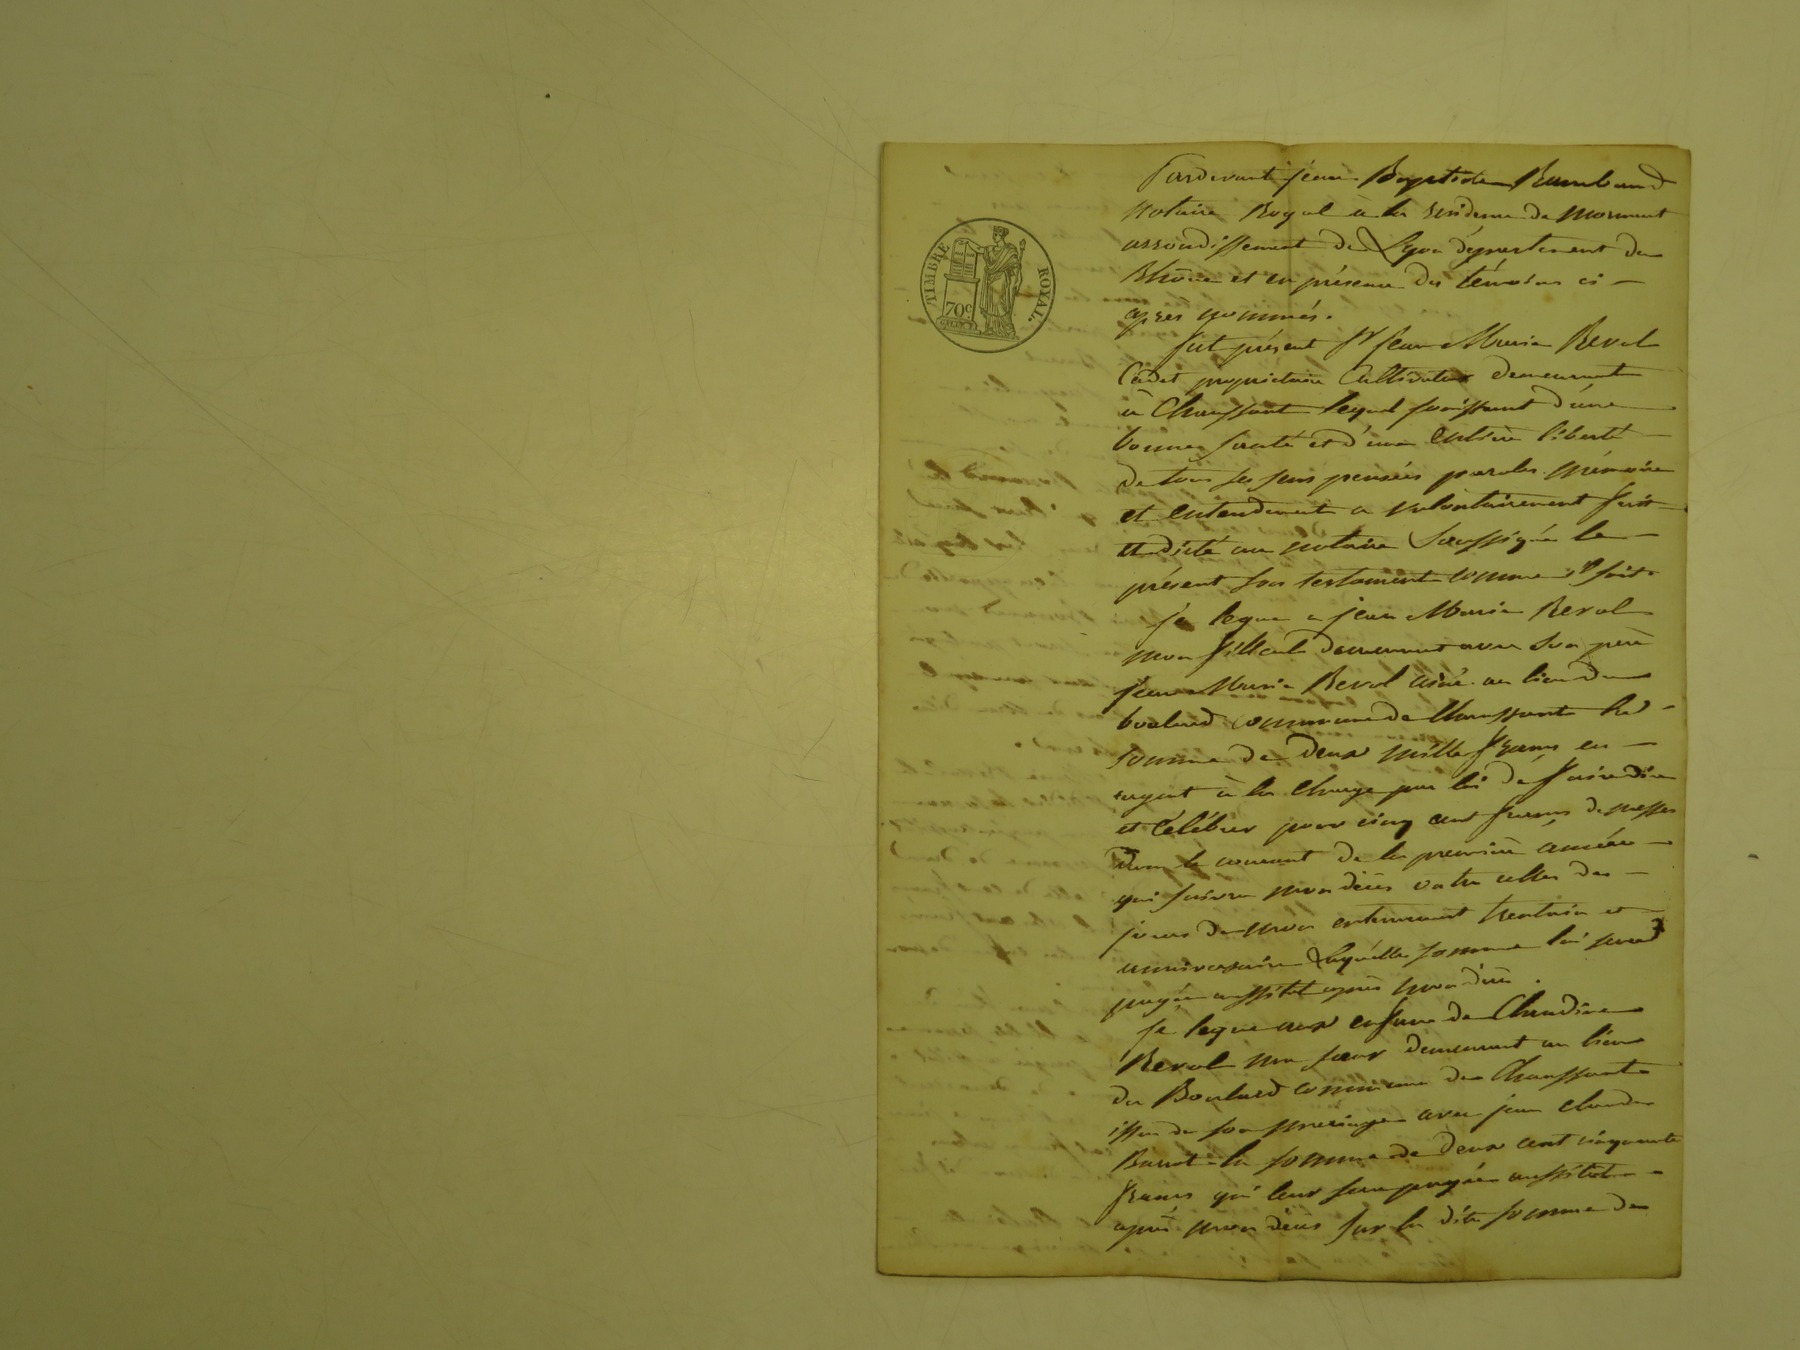 TIMBRE ROYAL.
70c
Pardevant jean Baptiste
Notaire Royal à la residence de mornant
arrondissement de Lyon département du
Rhône et en présence des témoins ci -
après nommés.
fut présent Sr jean Marie Revol
Cadet propriétaire Cultivateur demeurant
à Chaussant lequel jouissant d'une
bonne santé et d'une entière liberté
de tous ses sens pensées paroles mémoire
et entendement a volontairement fait
et dicté au notaire soussigné le
présent son testament comme s'suit.
je legue a jean Marie Revol
mon filleul demeurant avec son père
jean Marie Revol ainé au lieu du
boulard commune de Chaussant la
somme de deux mille francs en
argent à la charge par lui de faire dire
et célébrer pour cinq cent francs de messes
dans le courant de la première année
qui suivra mon décès outre celles des
jours de mon enterrement trentain et
anniversaire Laquelle somme lui sera
payée aussitot après mon décès.
je legue aux enfans de Claudine
Revol ma sœur demeurant au lieu
du Boulard commune de Chaussant
issus de son mariage avec jean claude
la somme de deux cent cinquante
francs qui leur sera payée aussitot
après mon décès sur la dite somme de